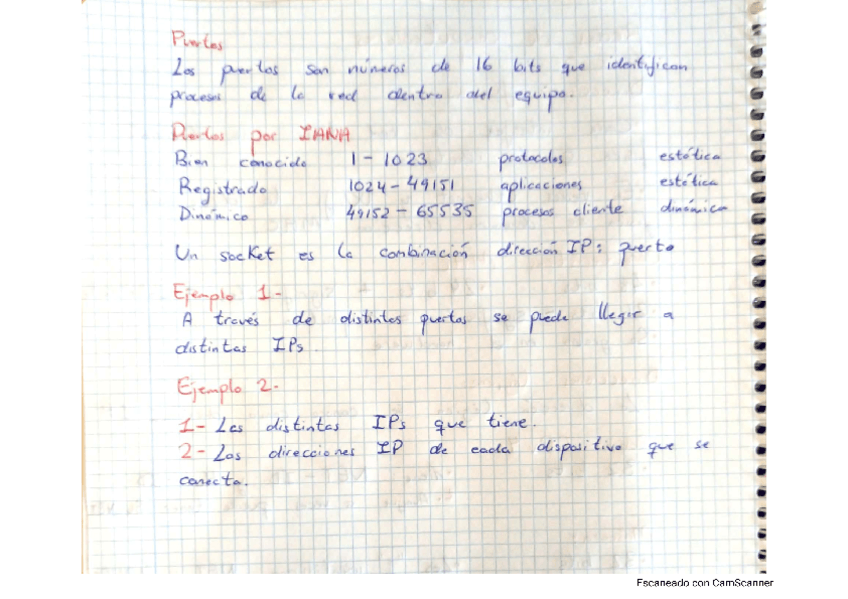 Puertos
Los puertos son números de 16 bits que identifican
procesos de la red dentro del equipo.
Puertos por IANA
Bien conocido 1 - 1023 protocolos estática
Registrado 1024 - 49151 aplicaciones estática
Dinámico 49152 - 65535 procesos cliente dinámica
Un socket es la combinación dirección IP: puerto
Ejemplo 1-
A través de distintos puertos se puede llegar a
distintas IPs.
Ejemplo 2-
1- Las distintas IPs que tiene.
2- Las direcciones IP de cada dispositivo que se
conecta.
Escaneado con CamScanner